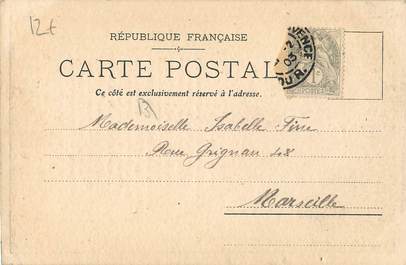 12t
RÉPUBLIQUE FRANÇAISE
CARTE POSTAL
Ce côté est exclusivement réservé à l'adresse.
Mademoiselle Isabelle Fine
Rue Grignan 48
Marseille